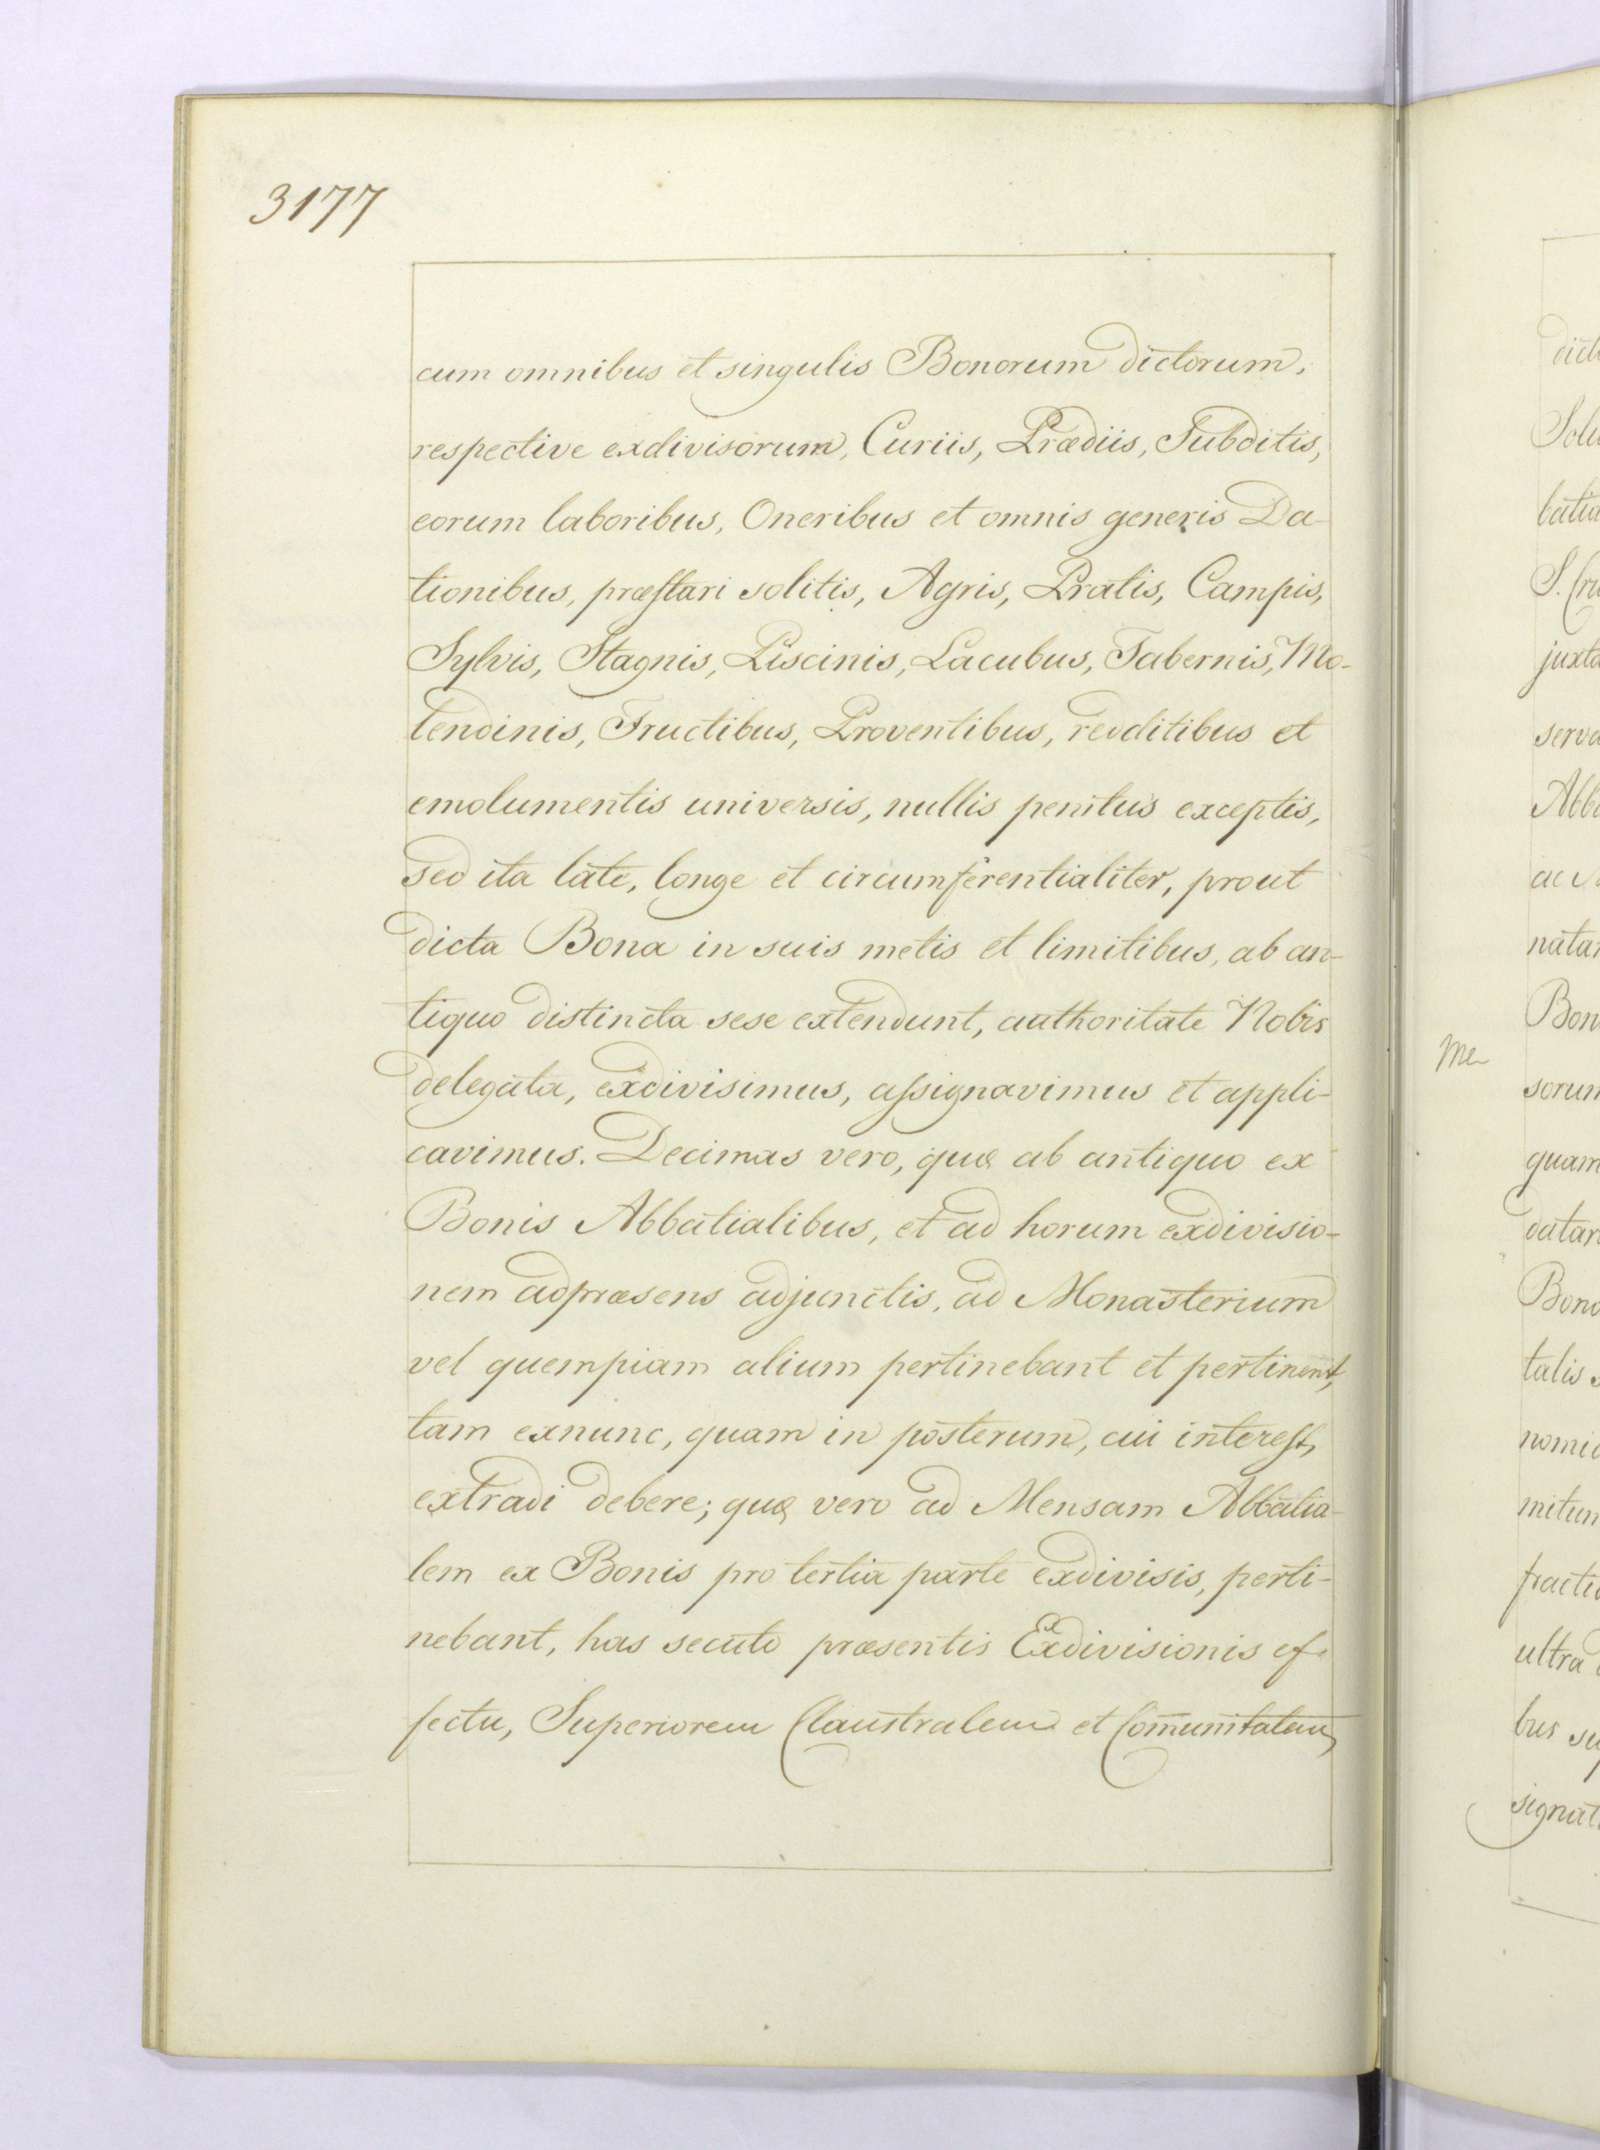 3177
cum omnibus et singulis Bonorum dictorum,
respective exdivisorum, Curiis, Prædiis, Subditis,
eorum laboribus, Oneribus et omnis generis Da-
tionibus, præstari solitis, Agris, Pratis, Campis,
Sylvis, Stagnis, Piscinis, Lacubus, Tabernis, Mo-
lendinis, Fructibus, Proventibus, redditibus et
emolumentis universis, nullis penitus exceptis,
sed ita late, longe et circumferentialiter, prout
dicta Bona in suis metis et limitibus, ab an-
tiquo distincta sese extendunt, authoritate Nobis
delegata, exdivisimus, assignavimus et appli-
cavimus. Decimas vero, quæ ab antiquo ex
Bonis Abbatialibus, et ad horum exdivisio-
nem adpræsens adjunctis, ad Monasterium
vel quempiam alium pertinebant et pertinent,
tam exnunc, quam in posterum, cui interest,
extradi debere; quæ vero ad Mensam Abbatia-
lem ex Bonis pro tertia parte exdivisis, perti-
nebant, has secuto præsentis Exdivisionis ef-
fectu, Superiorem Claustralem et Com̅unitatem,
Me
dict
Solu
batia
S. Cru
juxta
serva
Abba
natar
Bon
sorum
quam
datar
Bono
talis
nomi
mitun
fracti
ultra
bus su
signat